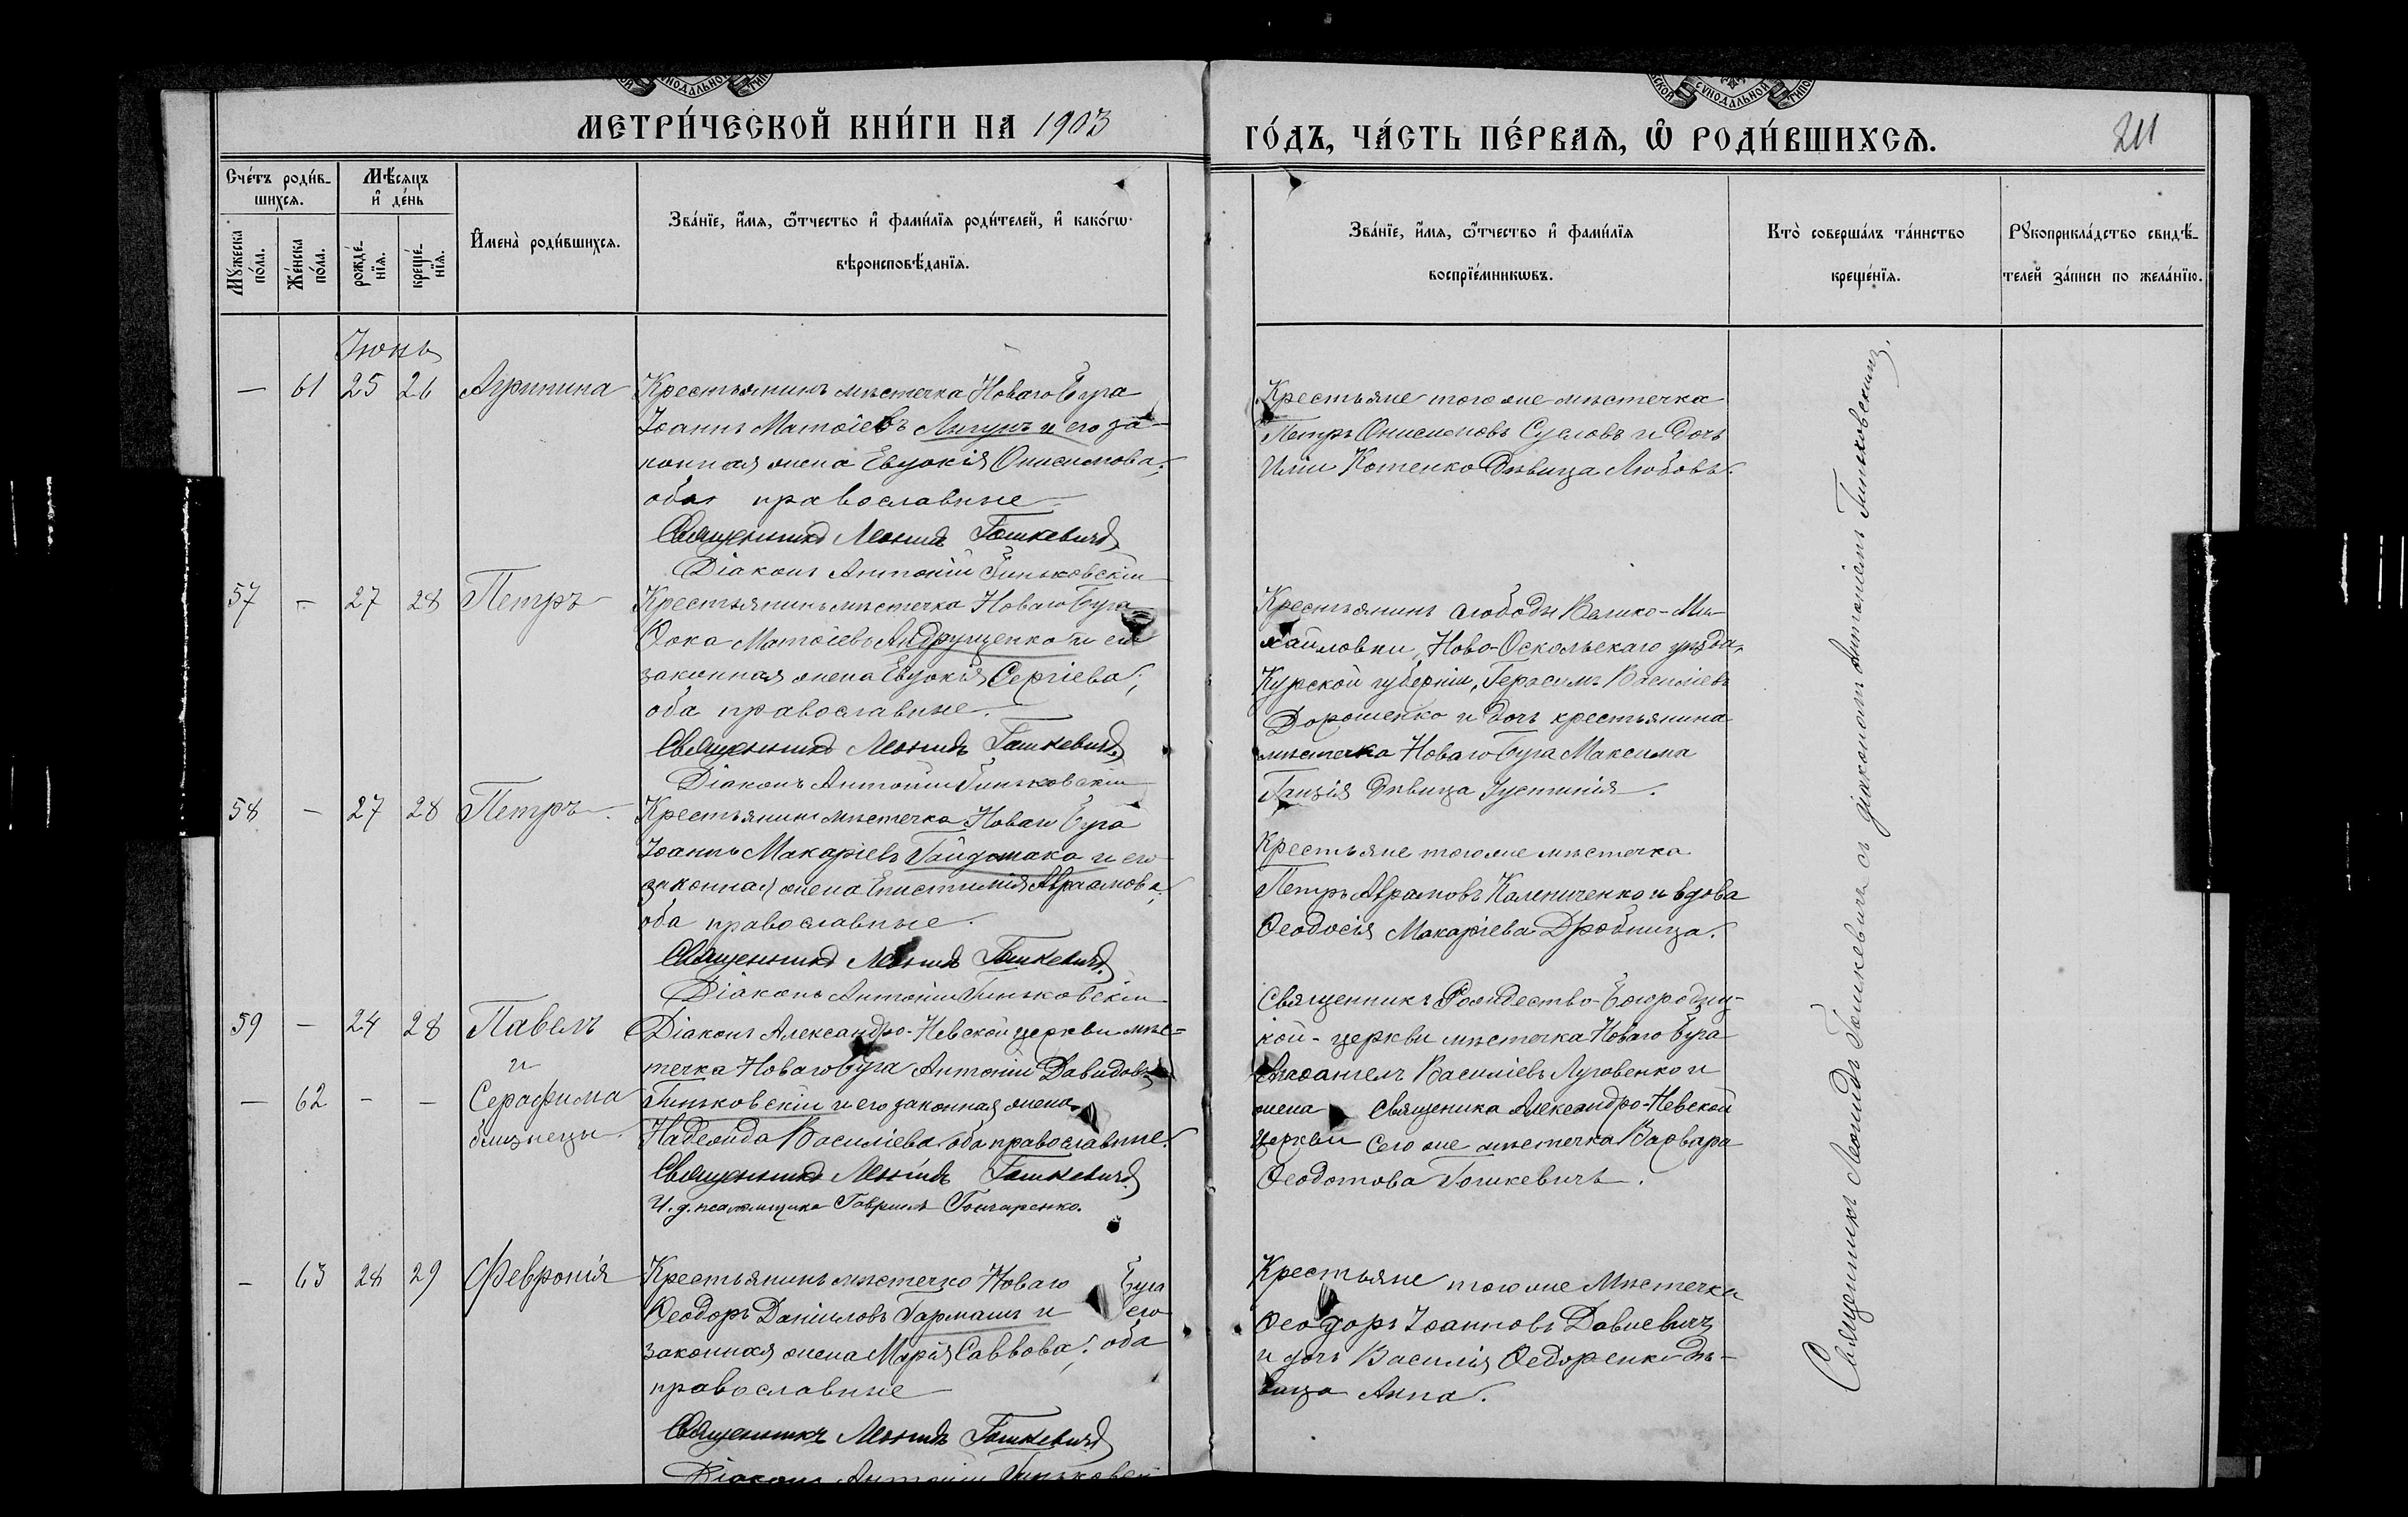 МЕТРИ́ЧЕСКОЙ КНИ́ГИ НА 1903
ГО́ДЪ, ЧА́СТЬ ПЕ́РВАѦ, Ѡ҆ РОДИ́ВШИХСѦ.
211
Сче́тъ роди́в-
шихсѧ.
Мѣ́сѧцъ
и҆ де́нь
Мꙋ́жеска
по́ла.
Же́нска
по́ла.
рожде́-
нїѧ.
креще́-
нїѧ.
И҆мена̀ роди́вшихсѧ.
Зва́нїе, и҆́мѧ, ѻ҆́тчество и҆ фами́лїѧ роди́телей, и҆ како́гѡ
вѣроисповѣ́данїѧ.
Зва́нїе, и҆́мѧ, ѻ҆́тчество и҆ фами́лїѧ
воспрїе́мникѡвъ.
Кто̀ соверша́лъ та́инство
креще́нїѧ.
Рꙋкоприкла́дство свидѣ́-
телей за́писи по жела́нїю.
Іюнь
— 61 25 26 Агрипина
Крестьянинъ мѣстечка Новаго Буга
Іоаннъ Матѳіевъ Лигунъ и его за-
конная жена Евдокія Онисимова,
оба православные
Священникъ Леонидъ Гошкевичъ
Діаконъ Антоній Гиньковскій
Крестьяне того же мѣстечка
Петръ Онисимовъ Сусловъ и дочь
Иліи Котенко дѣвица Любовь.
57 — 27 28 Петръ
Крестьянинъ мѣстечка Новаго Буга
Ѳока Матѳіевъ Андрущенко и его
законная жена Евдокія Сергіева;
оба православные.
Священникъ Леонидъ Гошкевичъ
Діаконъ Антоній Гиньковскій
Крестьянинъ слободы Велико-Ми-
хайловки, Ново-Оскольскаго уѣзда,
Курской губерніи, Герасимъ Василіевъ
Дорошенко и дочь крестьянина
мѣстечка Новаго Буга Максима
дѣвица Іустинія.
58 — 27 28 Петръ
Крестьянинъ мѣстечка Новаго Буга
Іоаннъ Макаріевъ Гайдамака и его
законная жена Епистимія Авраамова,
оба православные.
Священникъ Леонидъ Гошкевичъ
Діаконъ Антоній Гиньковскій
Крестьяне того же мѣстечка
Петръ Аврамовъ Калениченко и вдова
Ѳеодосія Макаріева Дробница.
59 — 24 28 Павелъ
и
— 62 — — Серафима
близнецы.
Діаконъ Александро-Невской церкви мѣс-
течка Новаго Буга Антоній Давидовъ
Гиньковскій и его законная жена
Надежда Василіева оба православные.
Священникъ Леонидъ Гошкевичъ
И. д. псаломщика Гавриилъ Гончаренко.
Священникъ Рождество-Богородиц-
кой-церкви мѣстечка Новаго Буга
Василіевъ Луговенко и
жена Священика Александро-Невской
Церкви сего же мѣстечка Варвара
Ѳеодотова Гошкевичъ.
— 63 28 29 Февронія
Крестьянинъ мѣстечко Новаго Буга
Ѳеодоръ Даниловъ Гармашъ и его
законная жена Марія Саввова; оба
православные
Священникъ Леонидъ Гошкевичъ
Діаконъ Антоній Гиньковскій
Крестьяне того же Мѣстечка
Ѳеодоръ Іоанновъ
и дочь Василія Ѳедоренко дѣ-
вица Анна.
Священникъ Леонидъ Гошкевичъ съ діакономъ Антоніемъ Гиньковскимъ.